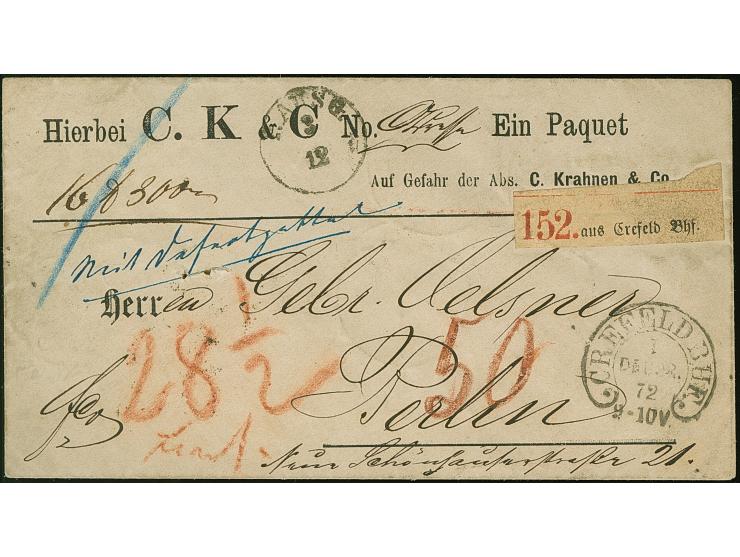 Hierbei C. K & C No. Adresse Ein Paquet
12
Auf Gefahr der Abs. C. Krahnen & Co
16 300
152. aus Crefeld Bhf.
Mit
Herren Gebr. Oelsner
28½ 50
CREFELD BHF.
1
72
9-10V.
Berlin
Neue Schönhauserstraße 21.